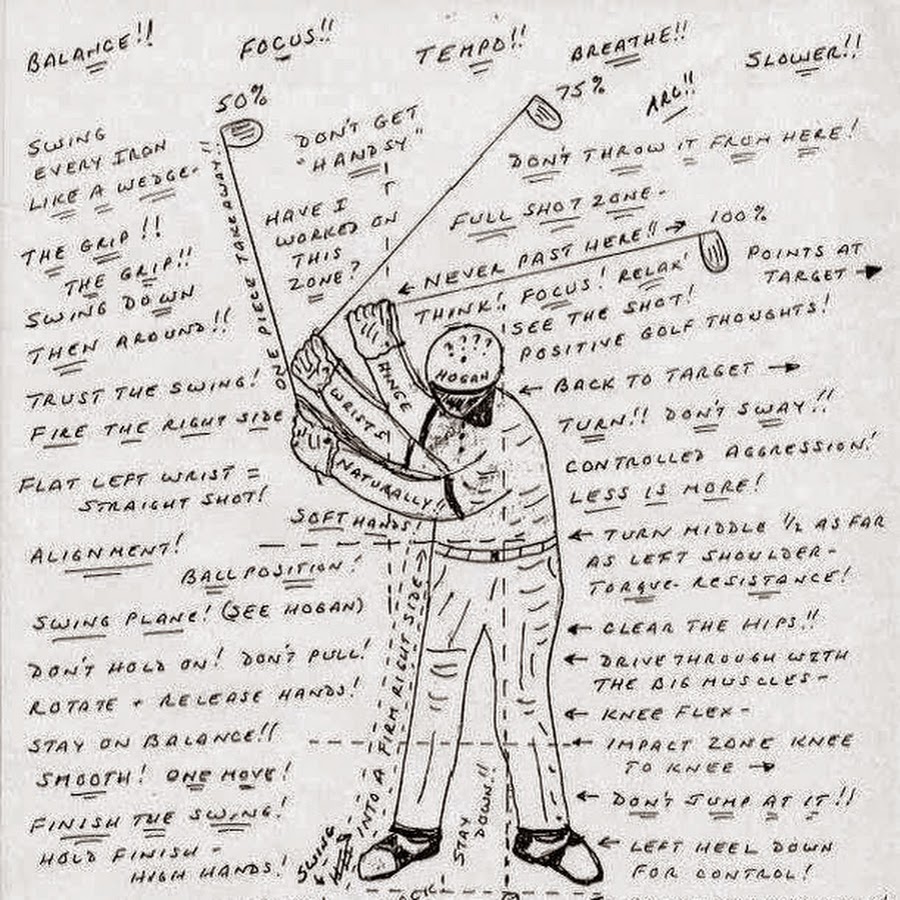 BALANCE!!
FOCUS!!
TEMPO!!
BREATHE!!
SLOWER!!
50%
75%
ARC!!
SWING
EVERY IRON
LIKE A WEDGE-
DON'T GET
"HANDSY"
DON'T THROW IT FROM HERE!
FULL SHOT ZONE-
THE GRIP!!
THE GRIP!!
SWING DOWN
THEN AROUND!!
ONE PIECE TAKEAWAY!!
HAVE I
WORKED ON
THIS
ZONE?
← NEVER PAST HERE!! →
100%
POINTS AT
TARGET →
THINK!, FOCUS! RELAX!
SEE THE SHOT!
POSITIVE GOLF THOUGHTS!
? ? ? ?
HOGAN
HINGE
WRISTS
NATURALLY!!
SOFT HANDS!
TRUST THE SWING!
FIRE THE RIGHT SIDE
FLAT LEFT WRIST =
STRAIGHT SHOT!
ALIGNMENT!
BALL POSITION!
SWING PLANE! (SEE HOGAN)
DON'T HOLD ON! DON'T PULL!
ROTATE + RELEASE HANDS!
STAY ON BALANCE!!
SMOOTH! ONE MOVE!
FINISH THE SWING!
HOLD FINISH -
HIGH HANDS!
← BACK TO TARGET →
TURN!! DON'T SWAY!!
CONTROLLED AGGRESSION!
LESS IS MORE!
← TURN MIDDLE 1/2 AS FAR
AS LEFT SHOULDER-
TORQUE- RESISTANCE!
← CLEAR THE HIPS!!
← DRIVE THROUGH WITH
THE BIG MUSCLES-
← KNEE FLEX-
← IMPACT ZONE KNEE
TO KNEE →
← DON'T JUMP AT IT!!
← LEFT HEEL DOWN
FOR CONTROL!
SWING
INTO A FIRM RIGHT SIDE
STAY
DOWN!!